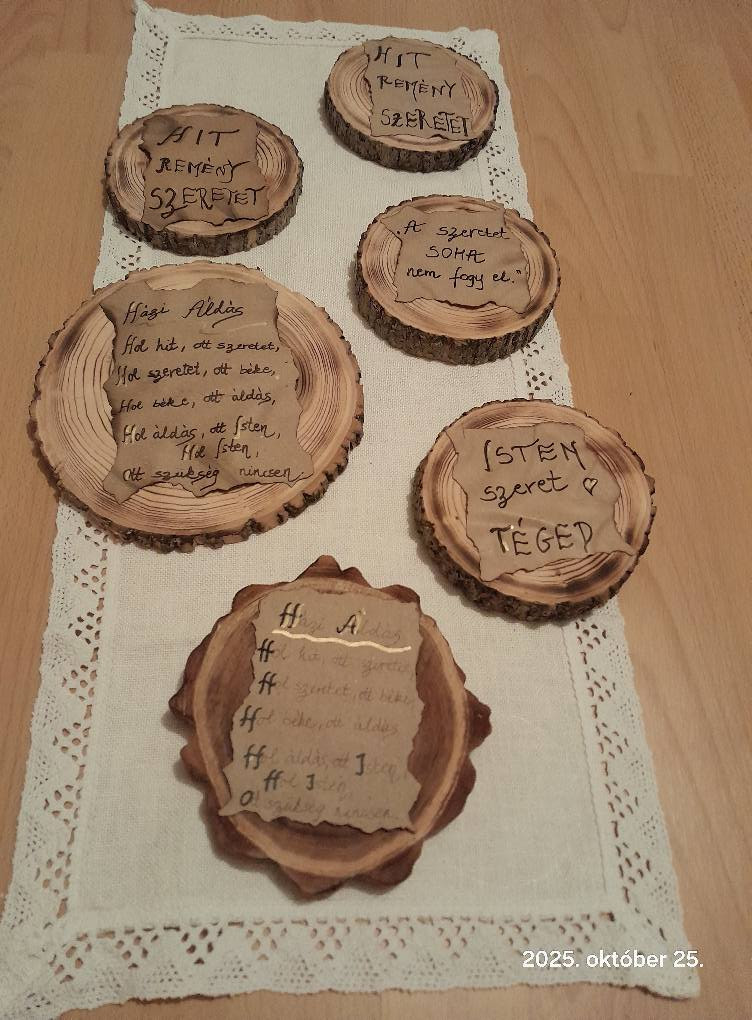 HIT
REMÉNY
SZERETET
HIT
REMÉNY
SZERETET
„A szeretet
SOHA
nem fogy el."
Házi Áldás
Hol hit, ott szeretet,
Hol szeretet, ott béke,
Hol béke, ott áldás,
Hol áldás, ott Isten,
Hol Isten,
Ott szükség nincsen.
ISTEN
szeret ♡
TÉGED
Házi Áldás
Hol hit, ott szeretet,
Hol szeretet, ott béke,
Hol béke, ott áldás
Hol áldás, ott Isten,
Hol Isten,
Ott szükség nincsen.
2025. október 25.